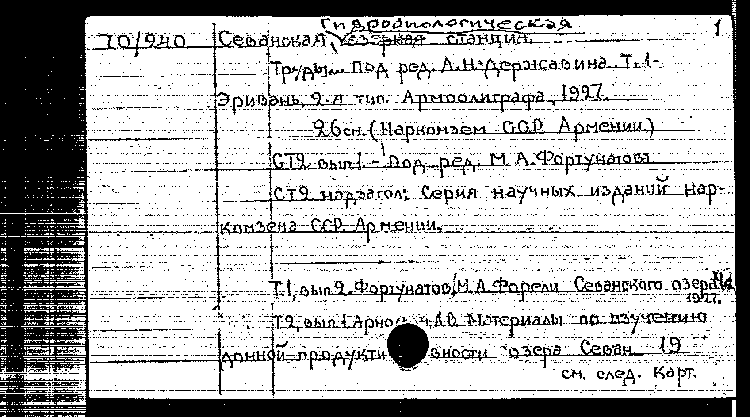 Гидробиологическая 1
70/940 Севанская озерная станция.
Труды... Под ред. А.Н. Державина. Т.1-
Эривань, 2-я тип. Армполиграфа, 1927.
26 см. (Наркомзем ССР Армении)
Ст2, вып1 - Под ред. М.А. Фортунатова
СТ2 надзагол: Серия научных изданий Нар-
комзема ССР Армении.
Т.1, вып 2. Фортунатов, М.А. Форели Севанского озера
1927.
Т2, вып 1 А.В. Материалы по изучению
донной продуктивности озера Севан. 19
см. след. карт.